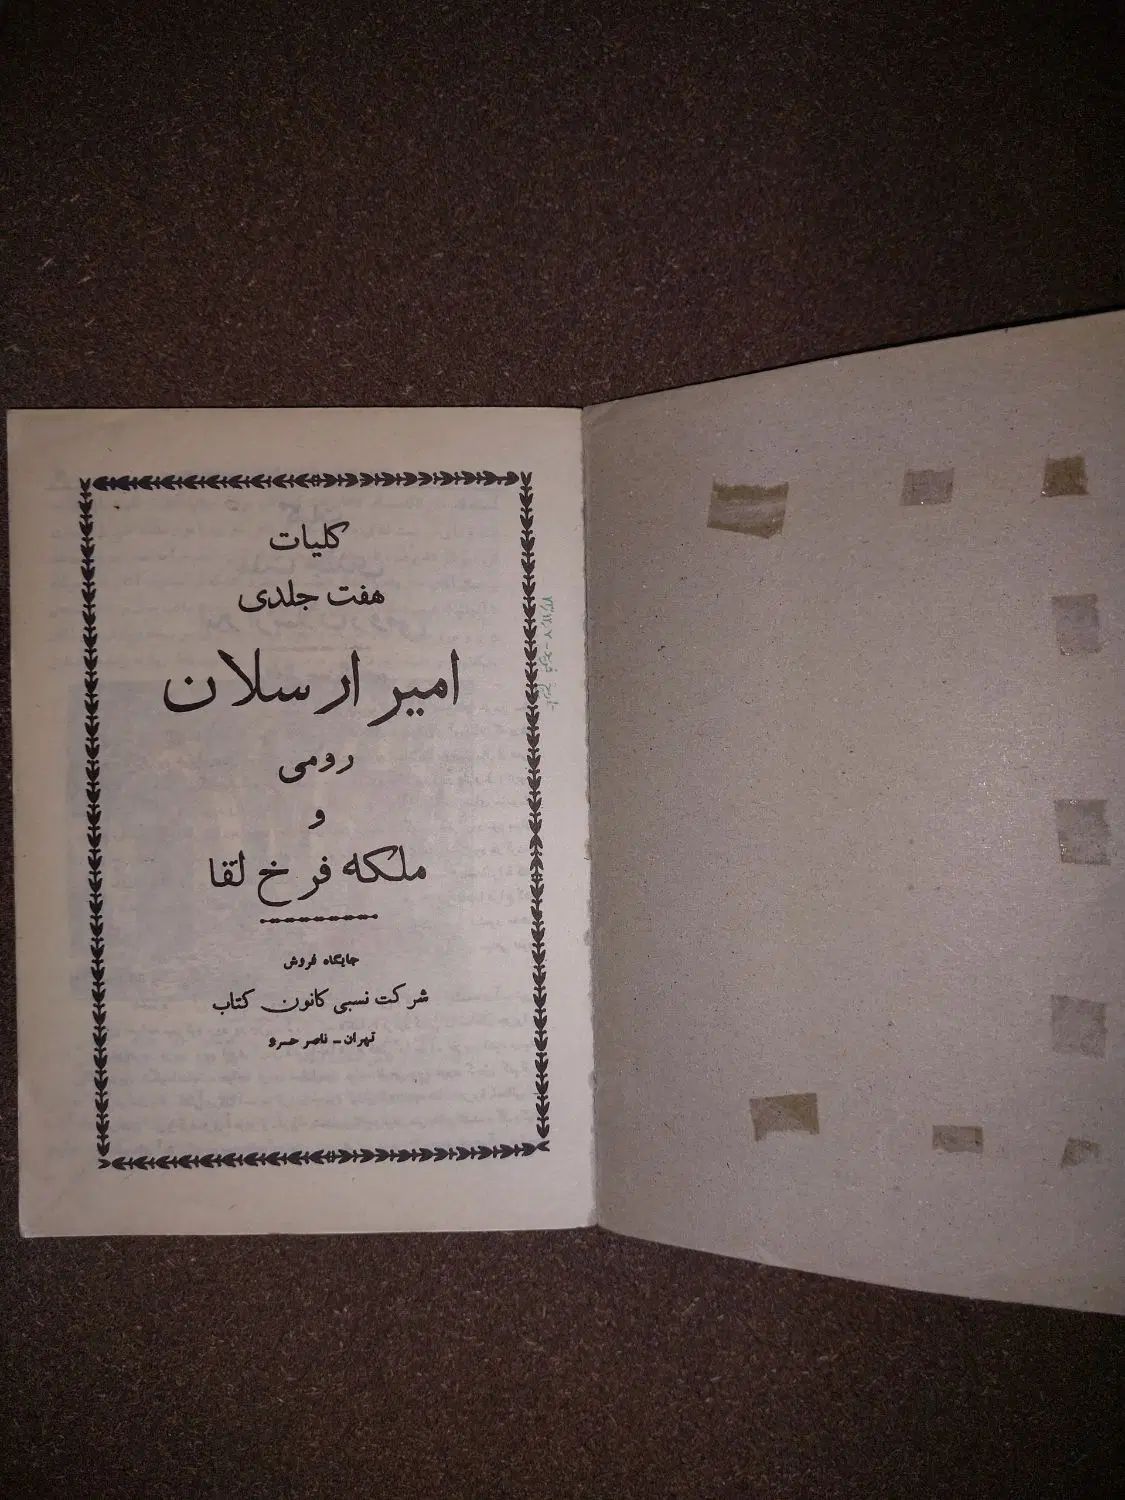 کلیات
هفت جلدی
امیر ارسلان
رومی
و
ملکه فرخ لقا
جایگاه فروش
شرکت نسبی کانون کتاب
تهران - ناصر خسرو